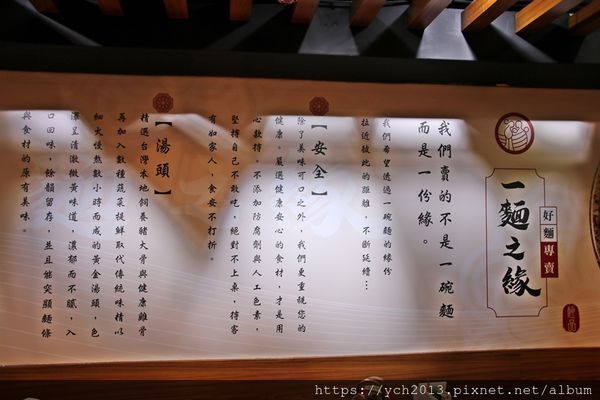 一麵之緣
好麵專賣
我們賣的不是一碗麵
而是一份緣。
我們希望透過一碗麵的緣份
拉近彼此的距離，不斷延續⋯
【安全】
除了美味可口之外，我們更重視您的
健康。嚴選健康安心的食材，才是用
心款待。不添加防腐劑與人工色素，
堅持自己不敢吃，絕對不上桌，待客
有如家人，食安不打折。
【湯頭】
精選台灣本地飼養豬大骨與健康雞骨
再加入數種蔬菜提鮮取代傳統味精以
細火慢熬數小時而成的黃金湯頭，色
澤呈清澈微黃味道，濃郁而不膩，入
口回味，餘韻留存，並且能突顯麵條
與食材的原有美味。
https://ych2013.pixnet.net/album